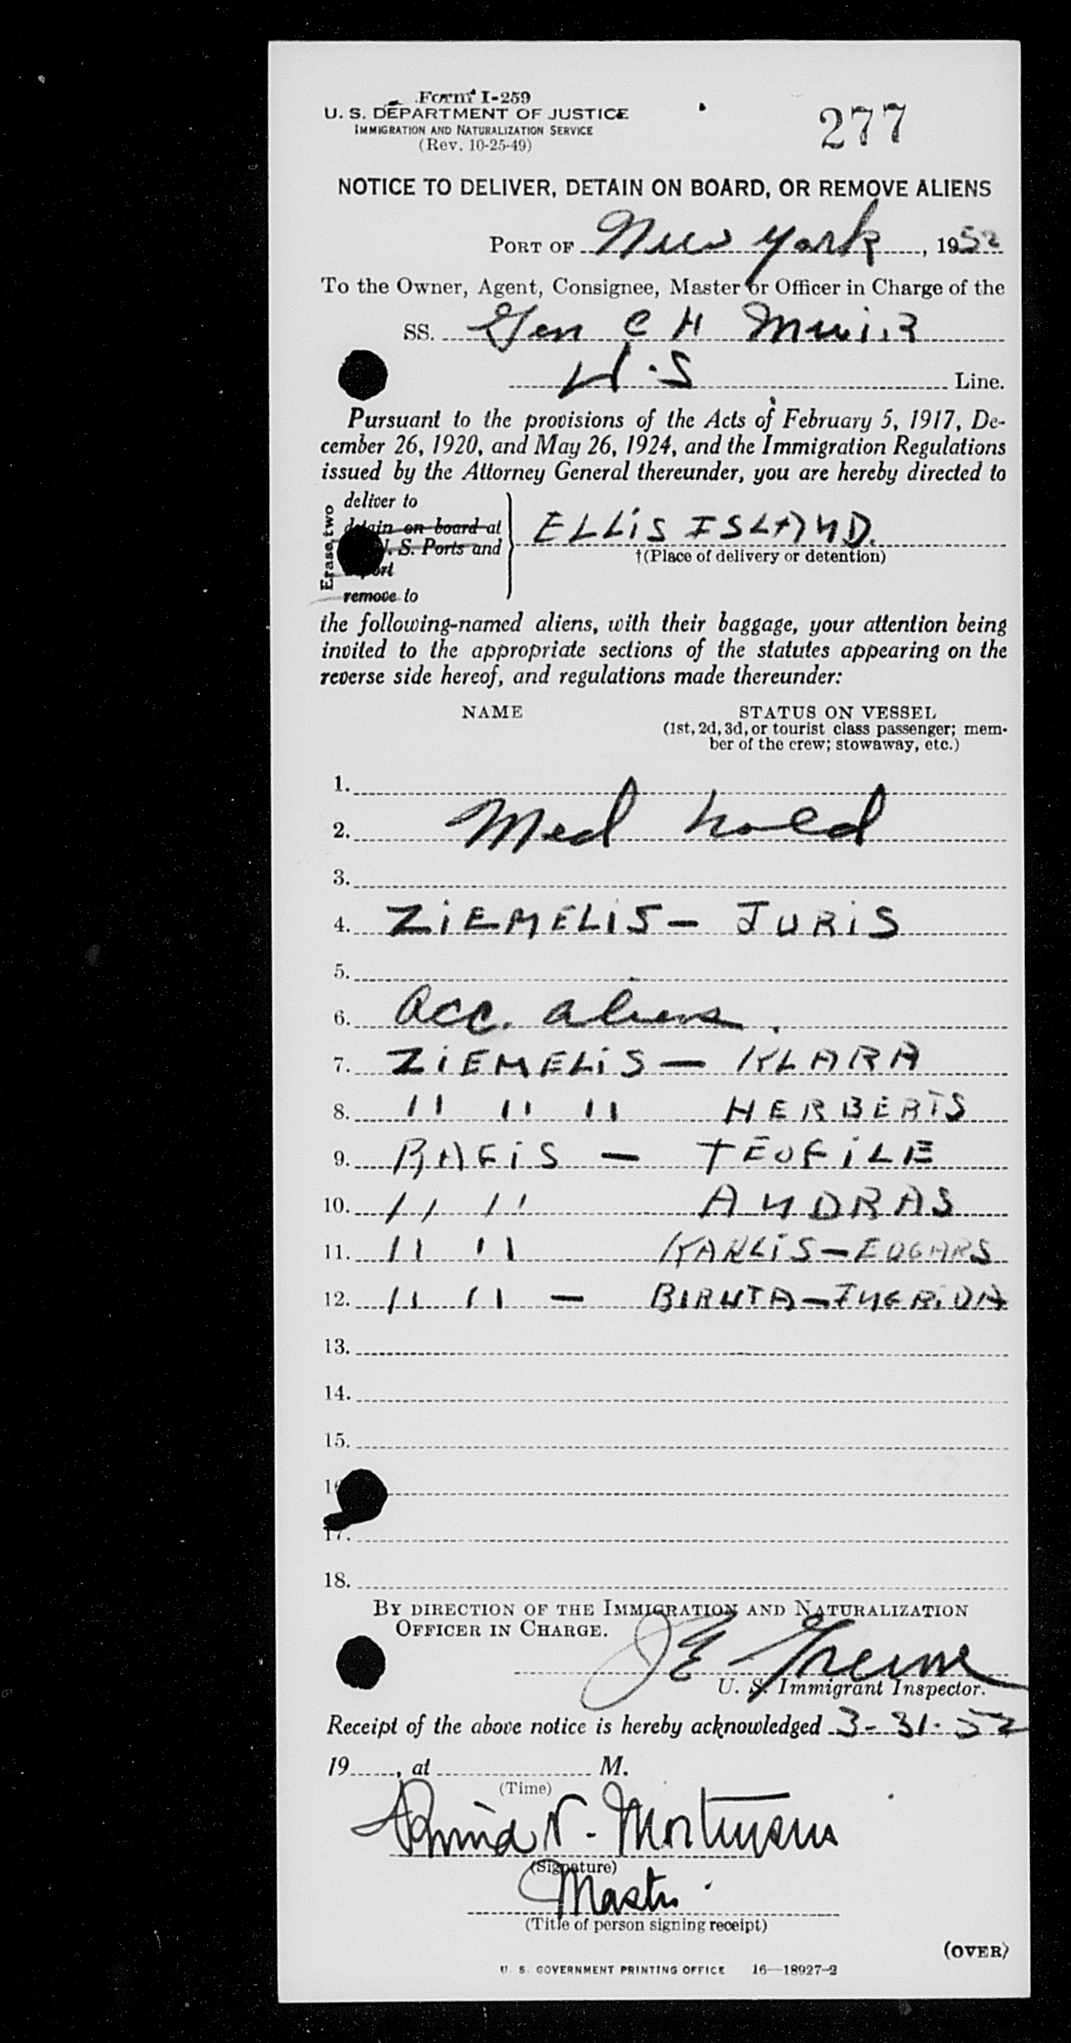 Form I-259
U. S. DEPARTMENT OF JUSTICE
IMMIGRATION AND NATURALIZATION SERVICE
(Rev. 10-25-49)
277
NOTICE TO DELIVER, DETAIN ON BOARD, OR REMOVE ALIENS
PORT OF New York, 1952
To the Owner, Agent, Consignee, Master or Officer in Charge of the
SS. Gen C H Muir
U.S Line.
Pursuant to the provisions of the Acts of February 5, 1917, De-
cember 26, 1920, and May 26, 1924, and the Immigration Regulations
issued by the Attorney General thereunder, you are hereby directed to
Erase two
deliver to
detain on board at
S. Ports and
remove to
ELLIS ISLAND.
†(Place of delivery or detention)
the following-named aliens, with their baggage, your attention being
invited to the appropriate sections of the statutes appearing on the
reverse side hereof, and regulations made thereunder:
NAME STATUS ON VESSEL
(1st, 2d, 3d, or tourist class passenger; mem-
ber of the crew; stowaway, etc.)
1.
2. Med hold
3.
4. ZIEMELIS - JURIS
5.
6. Acc. aliens.
7. ZIEMELIS - KLARA
8. " " " HERBERTS
9. - TEOFILE
10. " " ANDRAS
11. " " KARLIS - EDGARS
12. " " - BIRUTA - INGRIDA
13.
14.
15.
17.
18.
BY DIRECTION OF THE IMMIGRATION AND NATURALIZATION
OFFICER IN CHARGE.
J E Greene
U. S. Immigrant Inspector.
Receipt of the above notice is hereby acknowledged 3-31-52
19, at M.
(Time)
N. Mortensen
(Signature)
Master
(Title of person signing receipt)
(OVER)
U. S. GOVERNMENT PRINTING OFFICE 16—18927-2